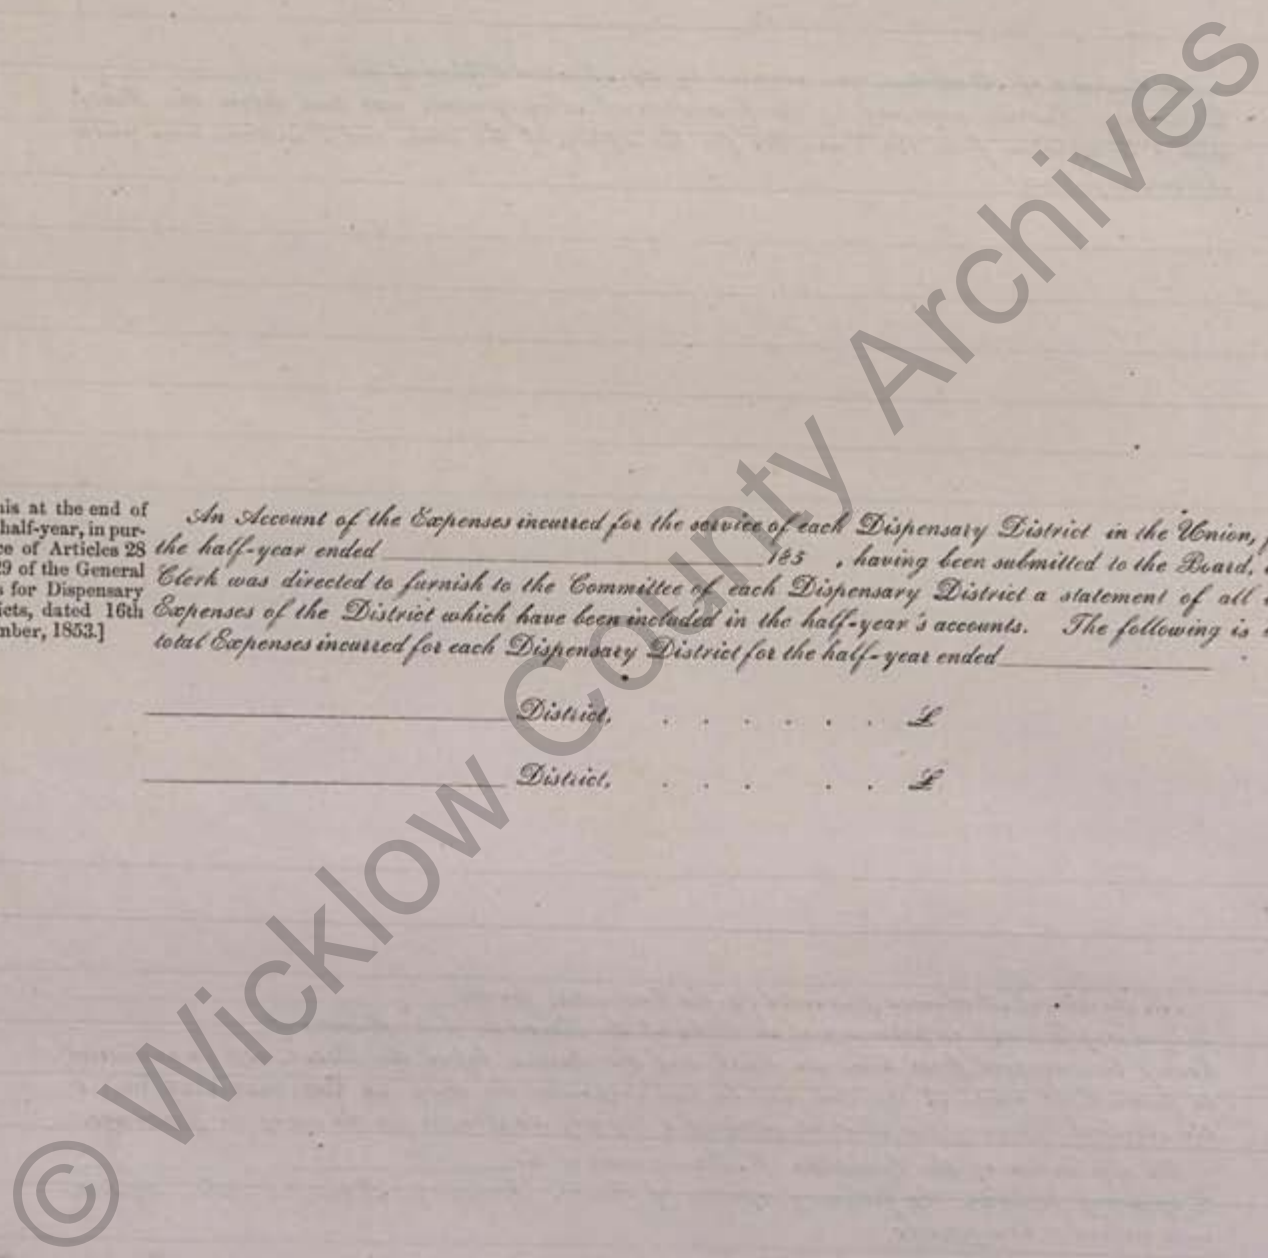 his at the end of
half-year, in pur-
ce of Articles 28
29 of the General
s for Dispensary
icts, dated 16th
mber, 1853.]
An Account of the Expenses incurred for the service of each Dispensary District in the Union,
the half-year ended 185 , having been submitted to the Board,
Clerk was directed to furnish to the Committee of each Dispensary District a statement of all
Expenses of the District which have been included in the half-year's accounts. The following is
total Expenses incurred for each Dispensary District for the half-year ended
District, . . . . . . £
District, . . . . . £
© Wicklow County Archives